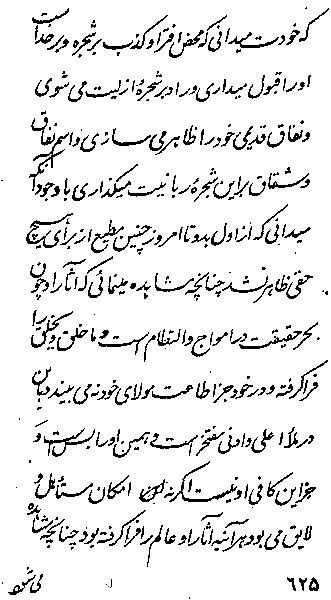 که خودت میدانی که محض افترا و کذب بر شجره و بر خداست
او را قبول میداری و راد بر شجرهٔ ازلیت می شوی
و نفاق قدیمی خود را ظاهر می سازی و اسم نفاق
و شقاق بر این شجرهٔ ربانیت میگذاری با وجود آنکه
میدانی که از اول بدء تا امروز چنین مطیع از برای هیچ
حقی ظاهر نشد چنانچه مشاهده مینمائی که آثار او چون
بحر حقیقت در امواج والتظام است و ما خلق و یخلق را
فرا گرفته و در خود جز اطاعت مولای خود نمی بیند و باین
در ملأ اعلی و ادنی مفتخر است و همین او را بس است و
جز این کافی او نیست اگر نه امکان متحمل و
لایق می بود هر آینه آثار او عالم را فرا گرفته بود چنانچه مشاهده
۶۲۵ می شود